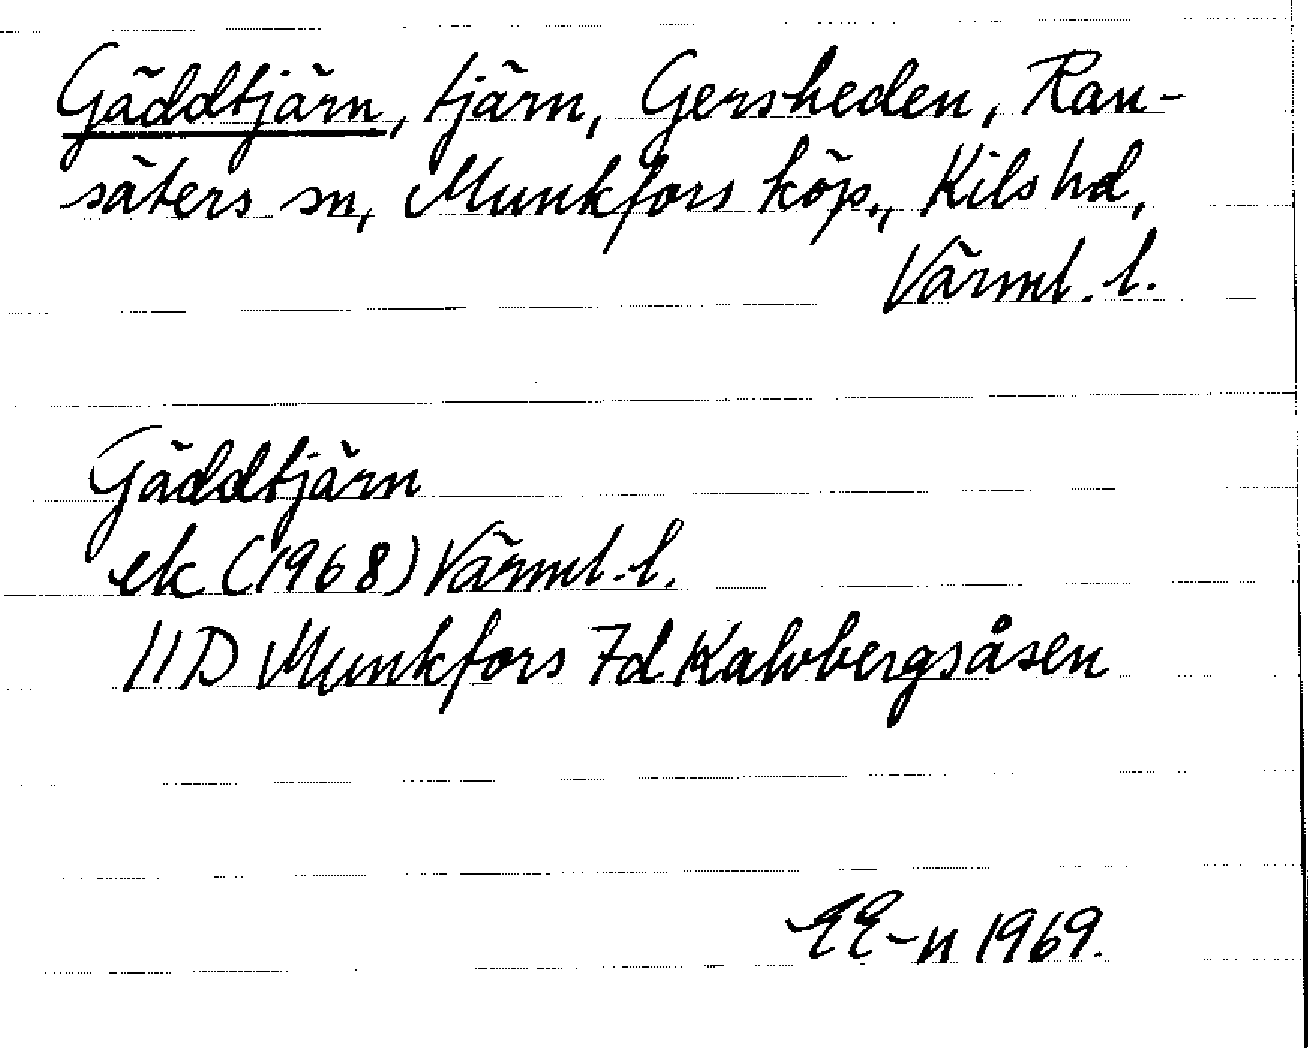 Gäddtjärn, tjärn, Gersheden, Ran-
säters sn, Munkfors köp., Kils hd,
Värml. l.
Gäddtjärn
ek (1968) Värml. l.
11D Munkfors 7d Kalvbergsåsen
EE-n 1969.